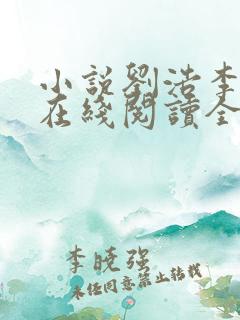 小说劉浩李
在线閱讀全
李晓强
未经同意禁止转载